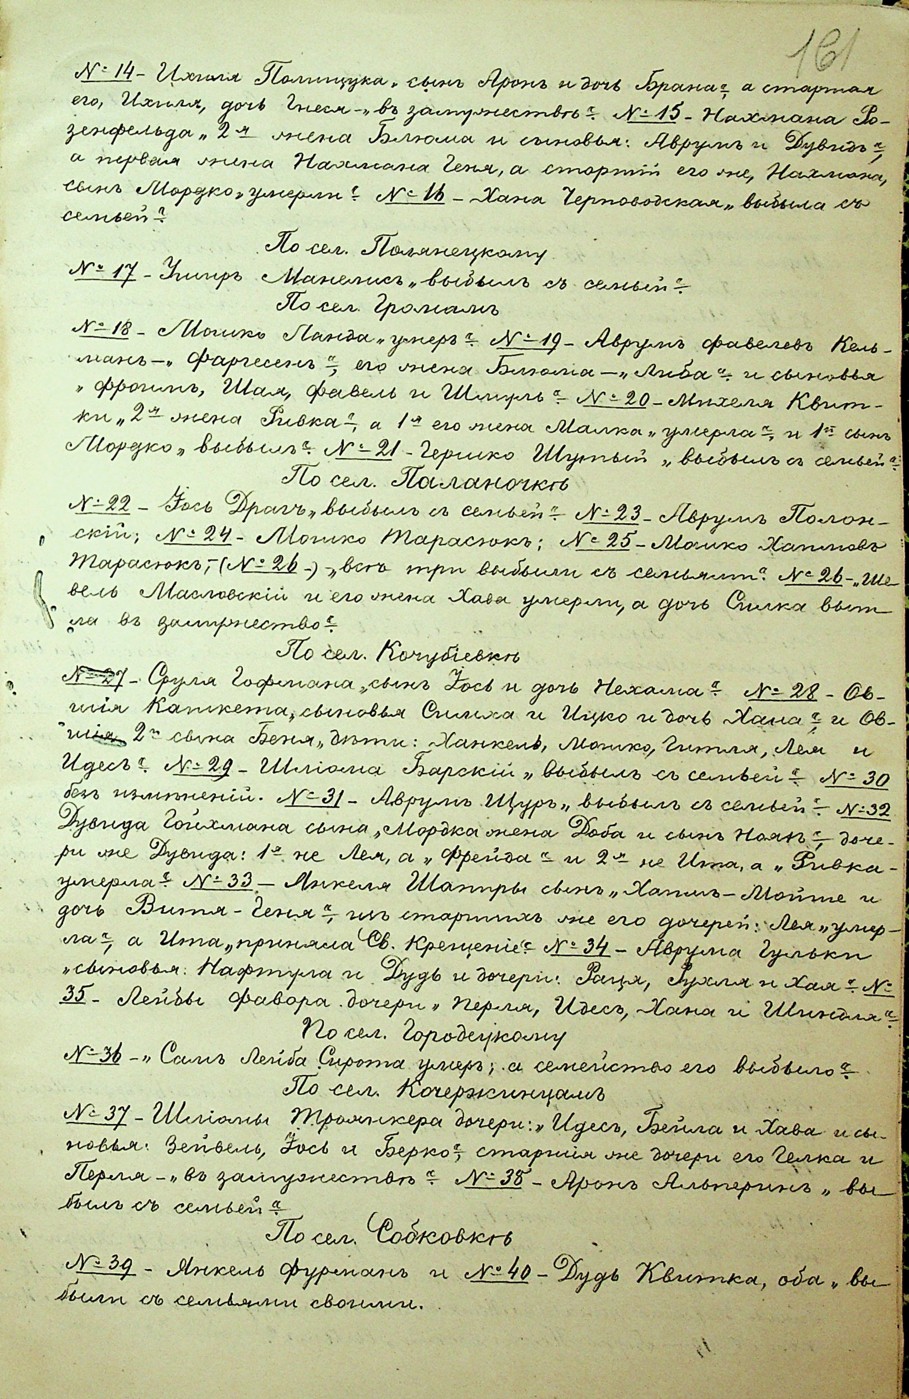 161
№ 14 - Ихиля Полищука „сынъ Аронъ и дочь Брана“, а старшая
его, Ихиля, дочь Гнеся - „въ замужествѣ“. № 15 - Нахмана Ро-
зенфельда „2я жена Блюма и сыновья: Аврумъ и Дувидъ“,
а первая жена Нахмана Геня, а старшій его же, Нахмана,
сынъ Мордко „умерли“. № 16 - Хана Черноводская „выбыла съ
семьей“.
По сел. Полянецкому
№ 17 - Ушеръ Манелисъ „выбылъ съ семьей“.
По сел. Громамъ
№ 18 - Мошко Ланда „умеръ“. № 19 - Аврумъ Фавелевъ Кель-
манъ - „Фаргесенъ“, его жена Блюма - „Либа“. и сыновья
„Фроимъ, Шая, Фавель и Шмуль“. № 20 - Михеля Квит-
ки „2я жена Ривка“, а 1я его жена Малка „умерла“, и 1й сынъ
Мордко „выбылъ“. № 21 - Гершко Шутый „выбылъ съ семьей“.
По сел. Паланочкѣ
№ 22 - Іось Драчъ „выбылъ съ семьей“. № 23 - Аврумъ Полон-
скій; № 24 - Мошко Тарасюкъ; № 25 - Мошко Хаимовъ
Тарасюкъ, - (№ 26 -) - „всѣ три выбыли съ семьями“. № 26 - „Ше-
вель Масловскій и его жена Хава умерли, а дочь Силка выш-
ла въ замужество“.
По сел. Кочубіевкѣ
№ 27 - Сруля Гофмана „сынъ Іось и дочь Нехама“. № 28 - Ов-
шія Капкета, „сыновья Симха и Ицко и дочь Хана“, и Ов-
шія 2го сына Беня „дѣти: Ханкель, Мошко, Гитля, Лея и
Идесъ“. № 29 - Шліома Барскій „выбылъ съ семьей“. № 30
безъ измѣненій. № 31 - Аврумъ Щуръ „выбылъ съ семьей“. № 32
Дувида Гойхмана сына „Мордка жена Доба и сынъ Нояхъ“, доче-
ри же Дувида: 1я не Лея, а „Фрейда“ и 2я не Ита, а „Ривка -
умерла“. № 33 - Янкеля Шапиры сынъ „Хаимъ - Мойше и
дочь Витя - Геня“, изъ старшихъ же его дочерей: Лея „умер-
ла“, а Ита „приняла Св. Крещеніе“. № 34 - Аврума Гульки
„сыновья: Нафтула и Дудь и дочери: Раця, Рухля и Хая“. №
35 - Лейбы Фавора дочери „Перля, Идесъ, Хана и Шиндля“.
По сел. Городецкому
№ 36 - „Самъ Лейба Сирота умеръ; а семейство его выбыло“.
По сел. Кочержинцамъ
№ 37 - Шліомы Троянкера дочери: „Идесъ, Бейла и Хава и сы-
новья: Зейвель, Іось и Берко“, старшія же дочери его Гелка и
Перля - „въ замужествѣ“. № 35 - Аронъ Альперинъ „вы-
былъ съ семьей“.
По сел. Собковкѣ
№ 39 - Янкель Фурманъ и № 40 - Дудь Квитка, оба „вы-
были съ семьями своими.